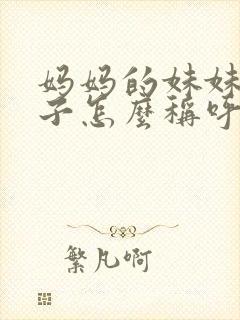 妈妈的妹妹
子怎麼稱呼
繁凡啊